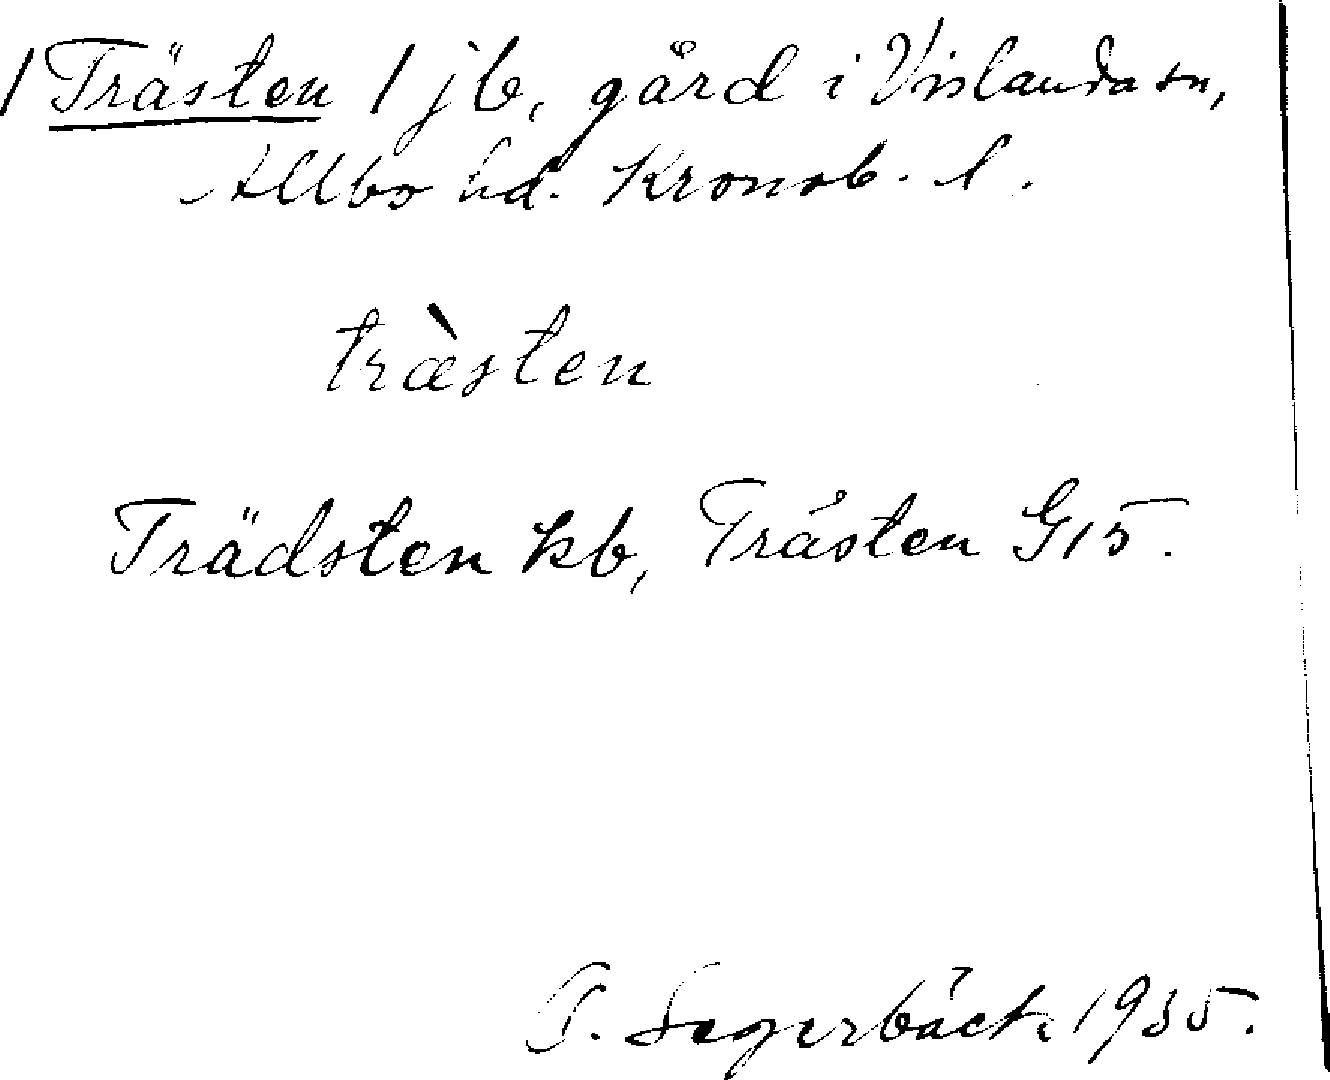 / Trästen / jb, gård i Vislanda sn,
Allbo hd. Kronob. l.
træ̀sten
Trädsten kb, Trästen G15.
P. Segerbäck 1935.